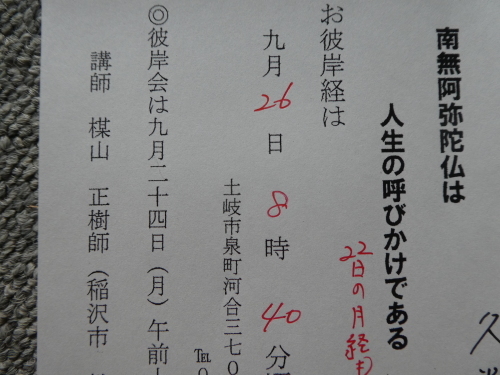 南無阿弥陀仏は
人生の呼びかけである
22日の月経も
お彼岸経は
九月26日8時40分
土岐市泉町河合三七〇
TEL 0
◎彼岸会は九月二十四日(月)午前
講師 楳山 正樹師(稲沢市